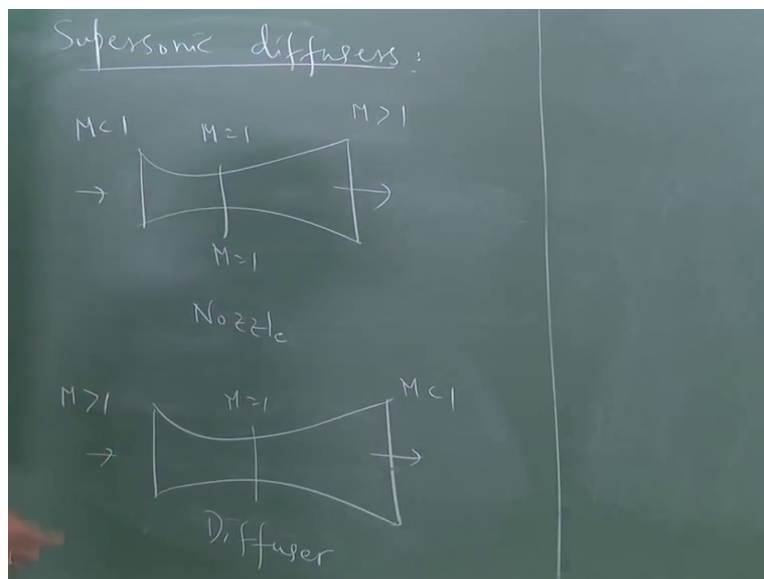 Supersonic diffusers:
M<1 M=1 M>1
M=1
Nozzle
M>1 M=1 M<1
Diffuser